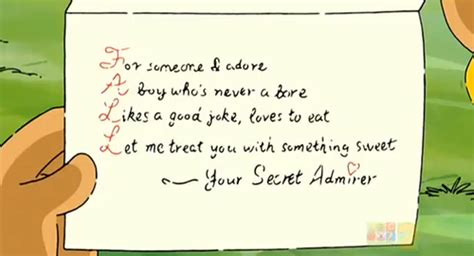 For someone I adore
A boy who's never a bore
Likes a good joke, loves to eat
Let me treat you with something sweet
Your Secret Admirer